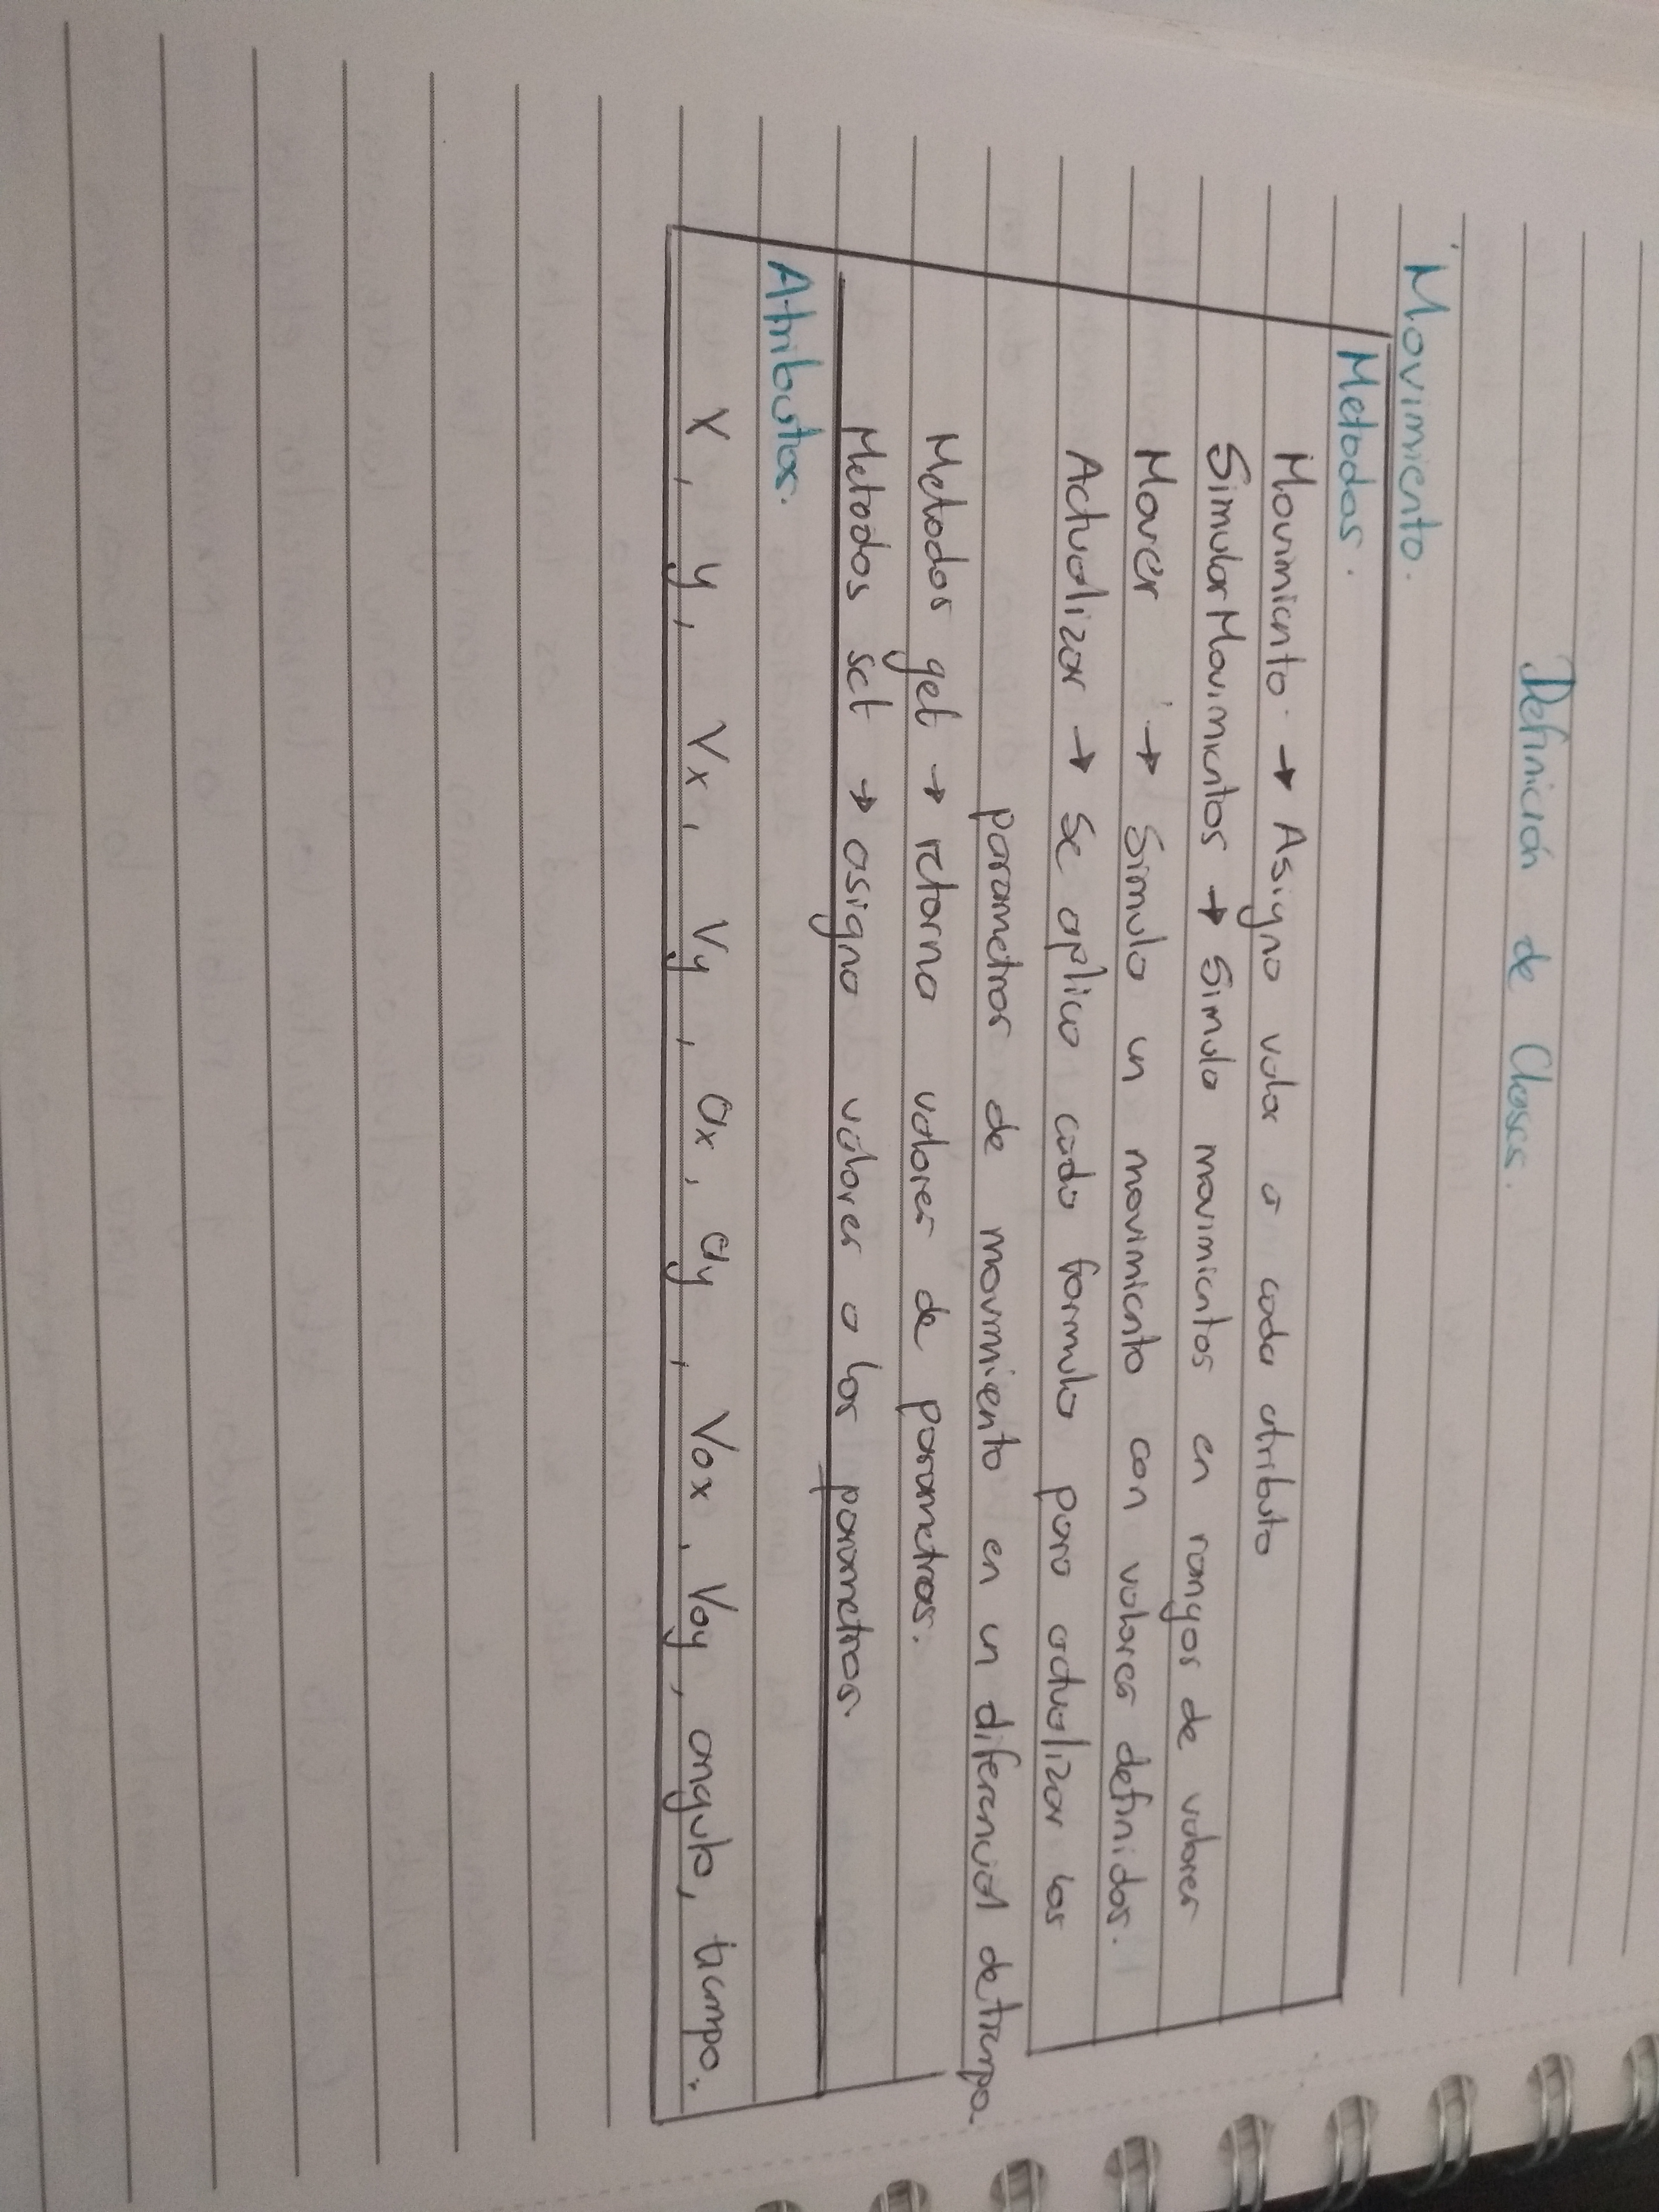 Definición de Clases.
Movimiento.
Metodos.
Movimiento → Asigna valor a cada atributo
SimularMovimientos → Simula movimientos en rangos de valores
Mover → Simula un movimiento con valores definidos.
Actualizar → Se aplica cada formula para actualizar los
parametros de movimiento en un diferencial de tiempo.
Metodos get → retorna valores de parametros.
Metodos set → asigna valores a los parametros.
Atributos.
X, y, Vx, Vy, ax, ay, Vox, Voy, angulo, tiempo.